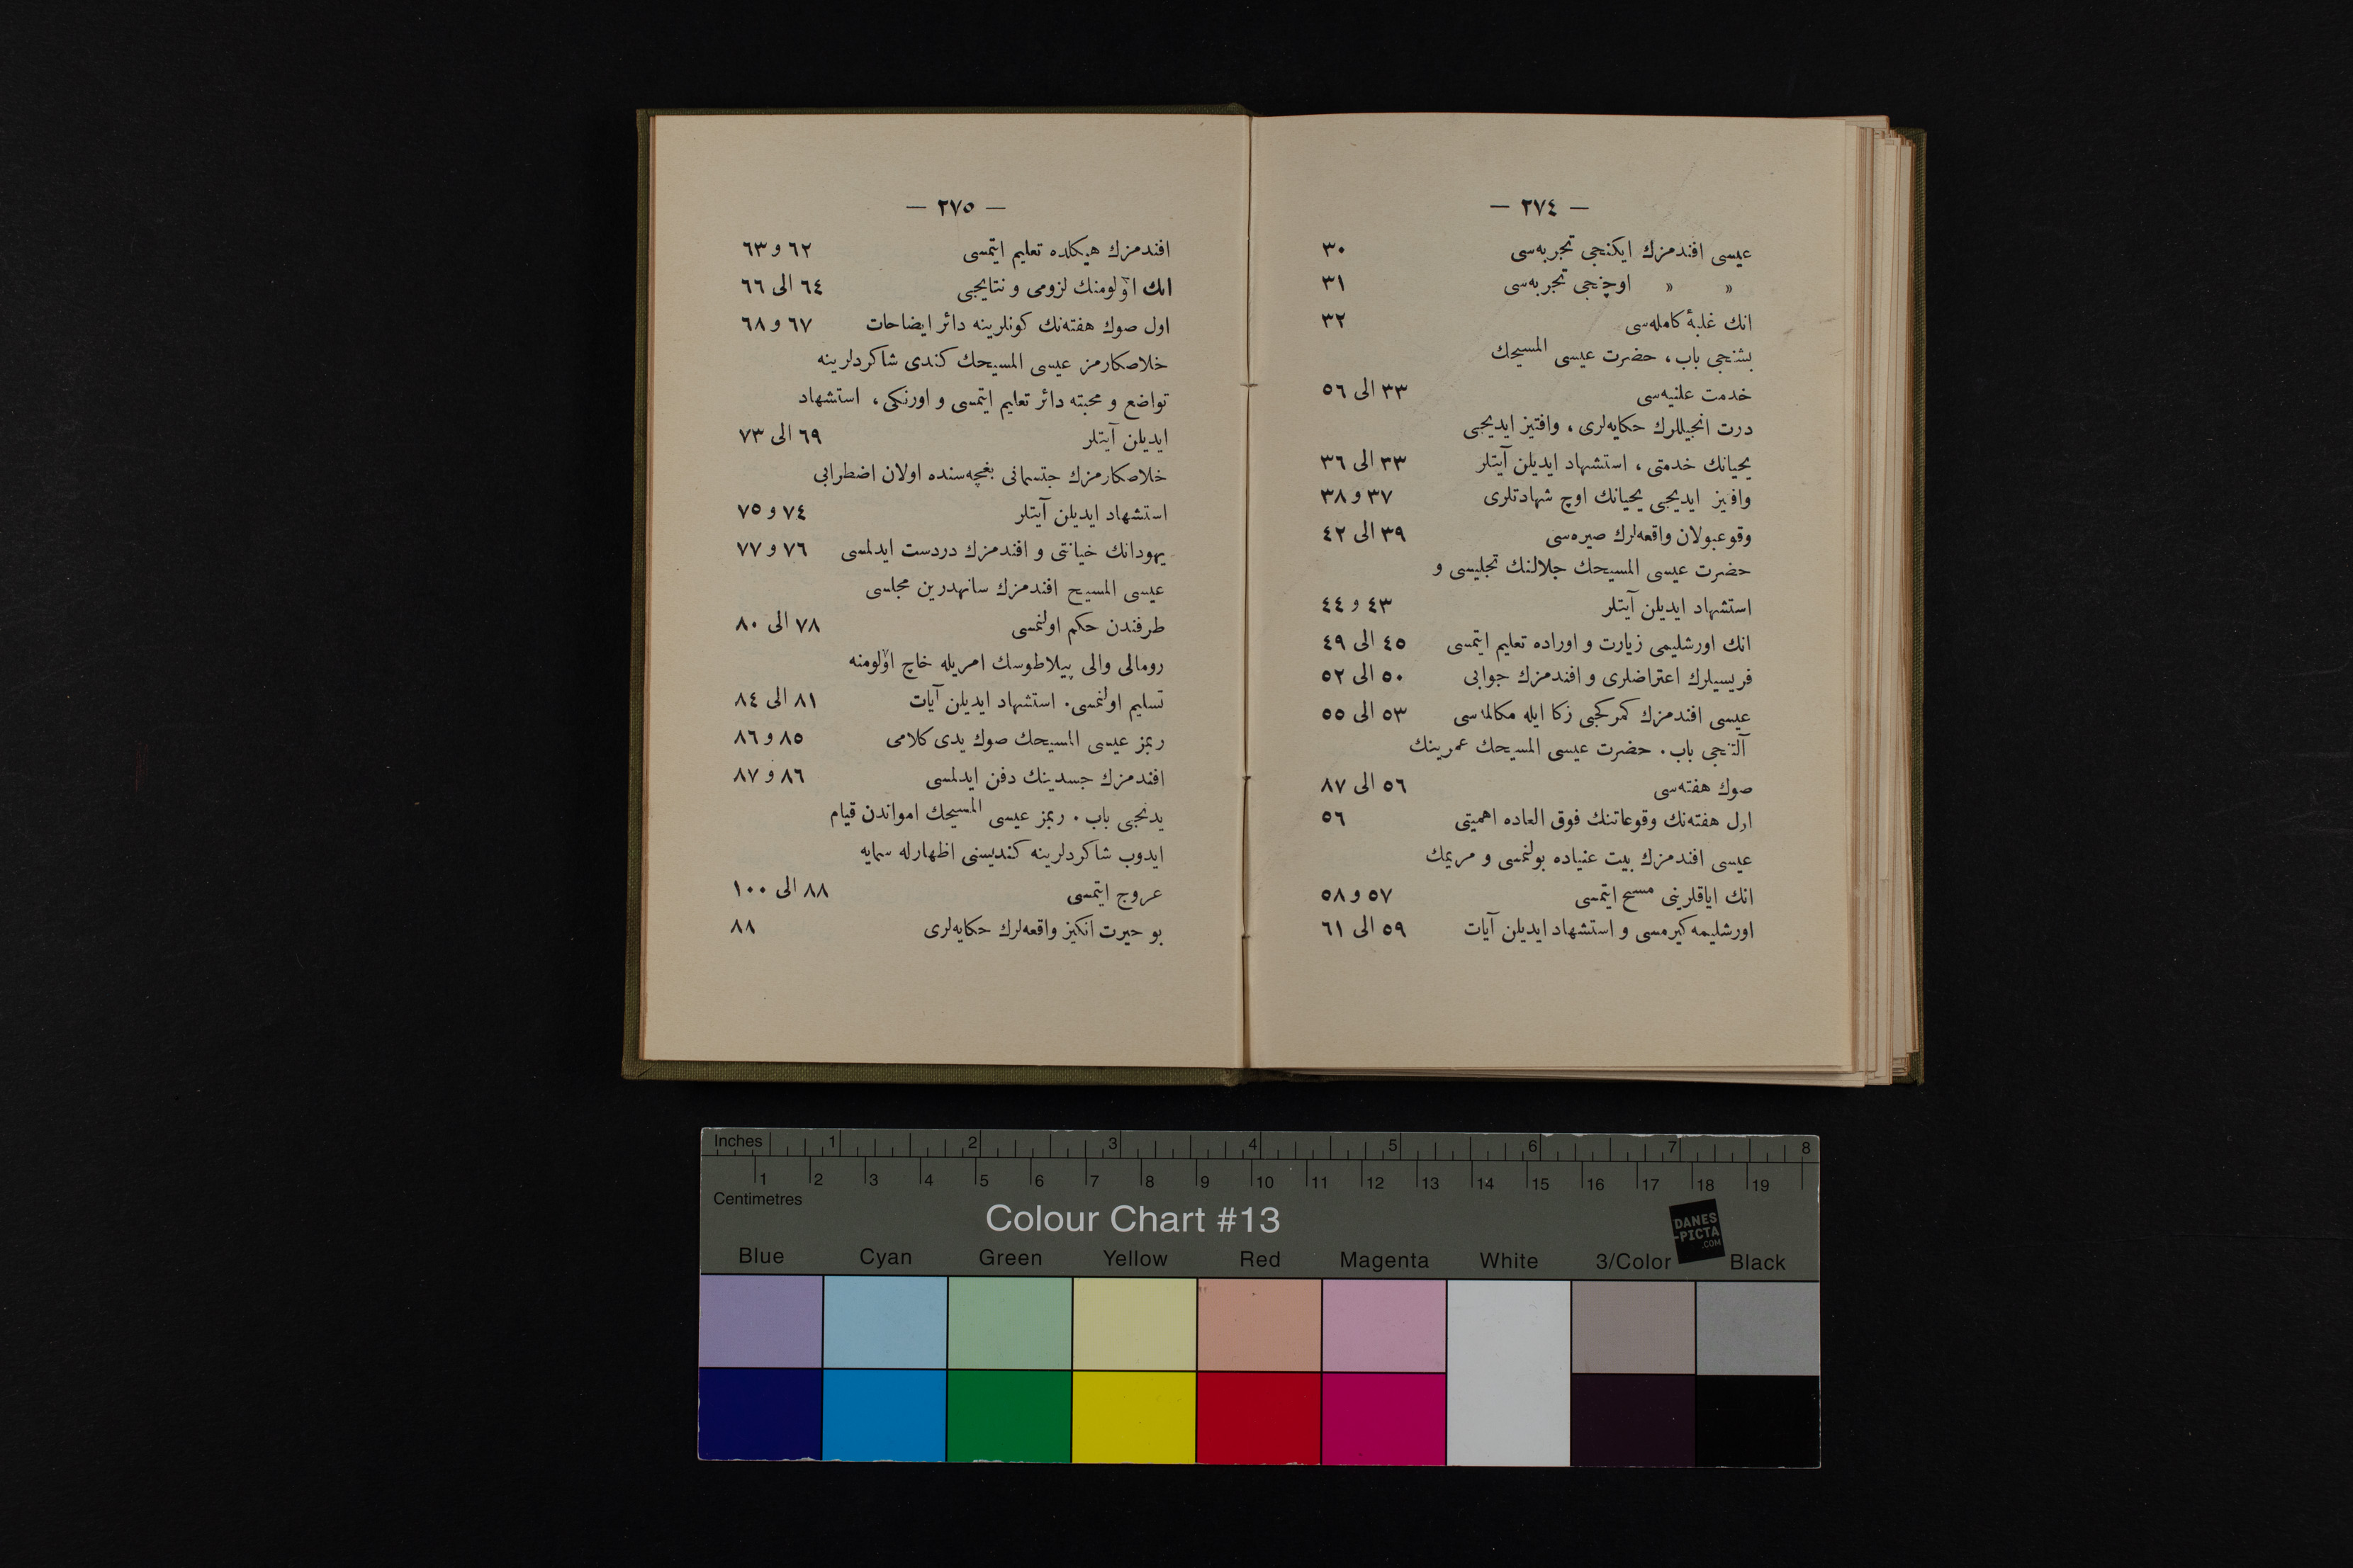 — ٢٧٤ —
عيسى افندمزك ايكنجى تجربه‌سى ٣٠
» » اوچنجى تجربه‌سى ٣١
انك غلبهٔ كامله‌سى ٣٢
بشنجى باب، حضرت عيسى المسيحك
خدمت علنيه‌سى ٣٣ الى ٥٦
درت انجيللرك حكايه‌لرى، وافتيز ايديجى
يحيانك خدمتى، استشهاد ايديلن آيتلر ٣٣ الى ٣٦
وافتيز ايديجى يحيانك اوچ شهادتلرى ٣٧ و ٣٨
وقوعبولان واقعه‌لرك صيره‌سى ٣٩ الى ٤٢
حضرت عيسى المسيحك جلالنك تجليسى و
استشهاد ايديلن آيتلر ٤٣ و ٤٤
انك اورشليمى زيارت و اوراده تعليم ايتمسى ٤٥ الى ٤٩
فريسيلرك اعتراضلرى و افندمزك جوابى ٥٠ الى ٥٢
عيسى افندمزك كمركجى زكا ايله مكالمه‌سى ٥٣ الى ٥٥
آلتنجى باب. حضرت عيسى المسيحك عمرينك
صوك هفته‌سى ٥٦ الى ٨٧
اول هفته‌نك وقوعاتنك فوق العاده اهميتى ٥٦
عيسى افندمزك بيت عنياده بولنمسى و مريمك
انك اياقلرينى مسح ايتمسى ٥٧ و ٥٨
اورشليمه كيرمسى و استشهاد ايديلن آيات ٥٩ الى ٦١
— ٢٧٥ —
افندمزك هيكلده تعليم ايتمسى ٦٢ و ٦٣
انك اولومنك لزومى و نتايجى ٦٤ الى ٦٦
اول صوك هفته‌نك كونلرينه دائر ايضاحات ٦٧ و ٦٨
خلاصكارمز عيسى المسيحك كندى شاكردلرينه
تواضع و محبته دائر تعليم ايتمسى و اورنكى، استشهاد
ايديلن آيتلر ٦٩ الى ٧٣
خلاصكارمزك جتسمانى بغچه‌سنده اولان اضطرابى
استشهاد ايديلن آيتلر ٧٤ و ٧٥
يهودانك خيانتى و افندمزك دردست ايدلمسى ٧٦ و ٧٧
عيسى المسيح افندمزك سانهدرين مجلسى
طرفندن حكم اولنمسى ٧٨ الى ٨٠
رومالى والى پيلاطوسك امريله خاچ اولومنه
تسليم اولنمسى. استشهاد ايديلن آيات ٨١ الى ٨٤
ربمز عيسى المسيحك صوك يدى كلامى ٨٥ و ٨٦
افندمزك جسدينك دفن ايدلمسى ٨٦ و ٨٧
يدنجى باب. ربمز عيسى المسيحك امواتدن قيام
ايدوب شاكردلرينه كنديسنى اظهارله سمايه
عروج ايتمسى ٨٨ الى ١٠٠
بو حيرت انكيز واقعه‌لرك حكايه‌لرى ٨٨
Inches 1 2 3 4 5 6 7 8
1 2 3 4 5 6 7 8 9 10 11 12 13 14 15 16 17 18 19
Centimetres
Colour Chart #13
DANES
-PICTA
.COM
Blue Cyan Green Yellow Red Magenta White 3/Color Black